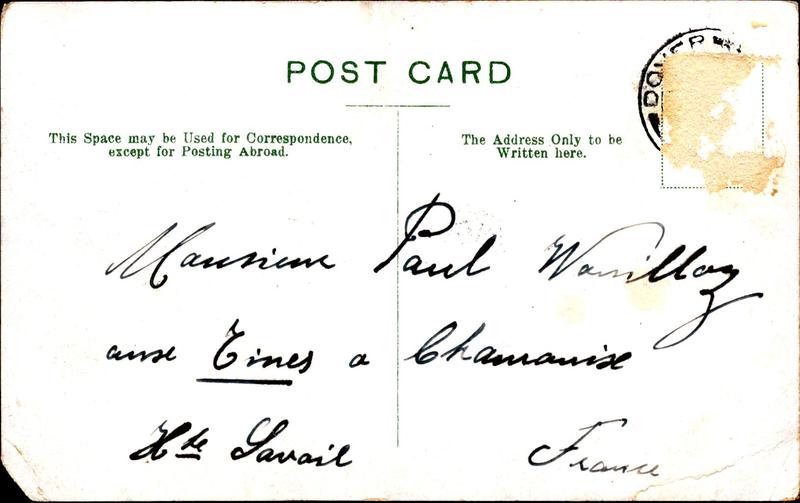 POST CARD
DOVER
This Space may be Used for Correspondence,
except for Posting Abroad.
The Address Only to be
Written here.
Monsieur Paul
aux Tines a Chamounix
Hte Savoie
France